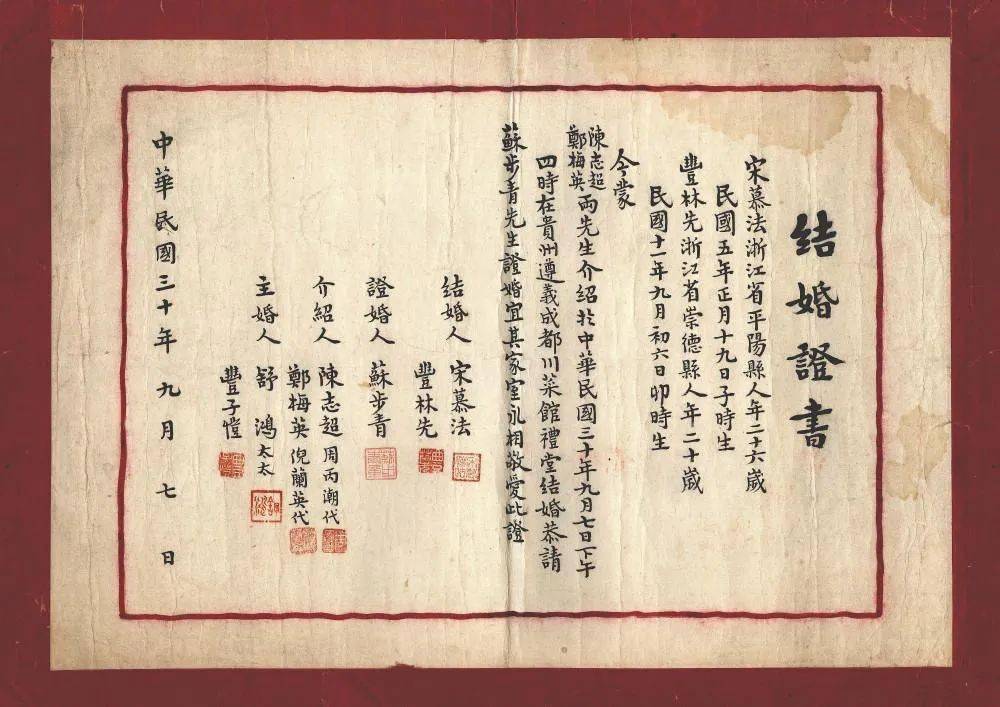 結婚證書
宋慕法浙江省平陽縣人年二十六歲
民國五年正月十九日子時生
豐林先浙江省崇德縣人年二十歲
民國十一年九月初六日卯時生
今蒙
陳志超
鄭梅英
兩先生介紹於中華民國三十年九月七日下午
四時在貴州遵義成都川菜館禮堂結婚恭請
蘇步青先生證婚宜其家室永相敬愛此證
結婚人 宋慕法
豐林先
證婚人 蘇步青
介紹人 陳志超 周丙潮代
鄭梅英 倪蘭英代
主婚人 舒鴻太太
豐子愷
中華民國三十年九月七日